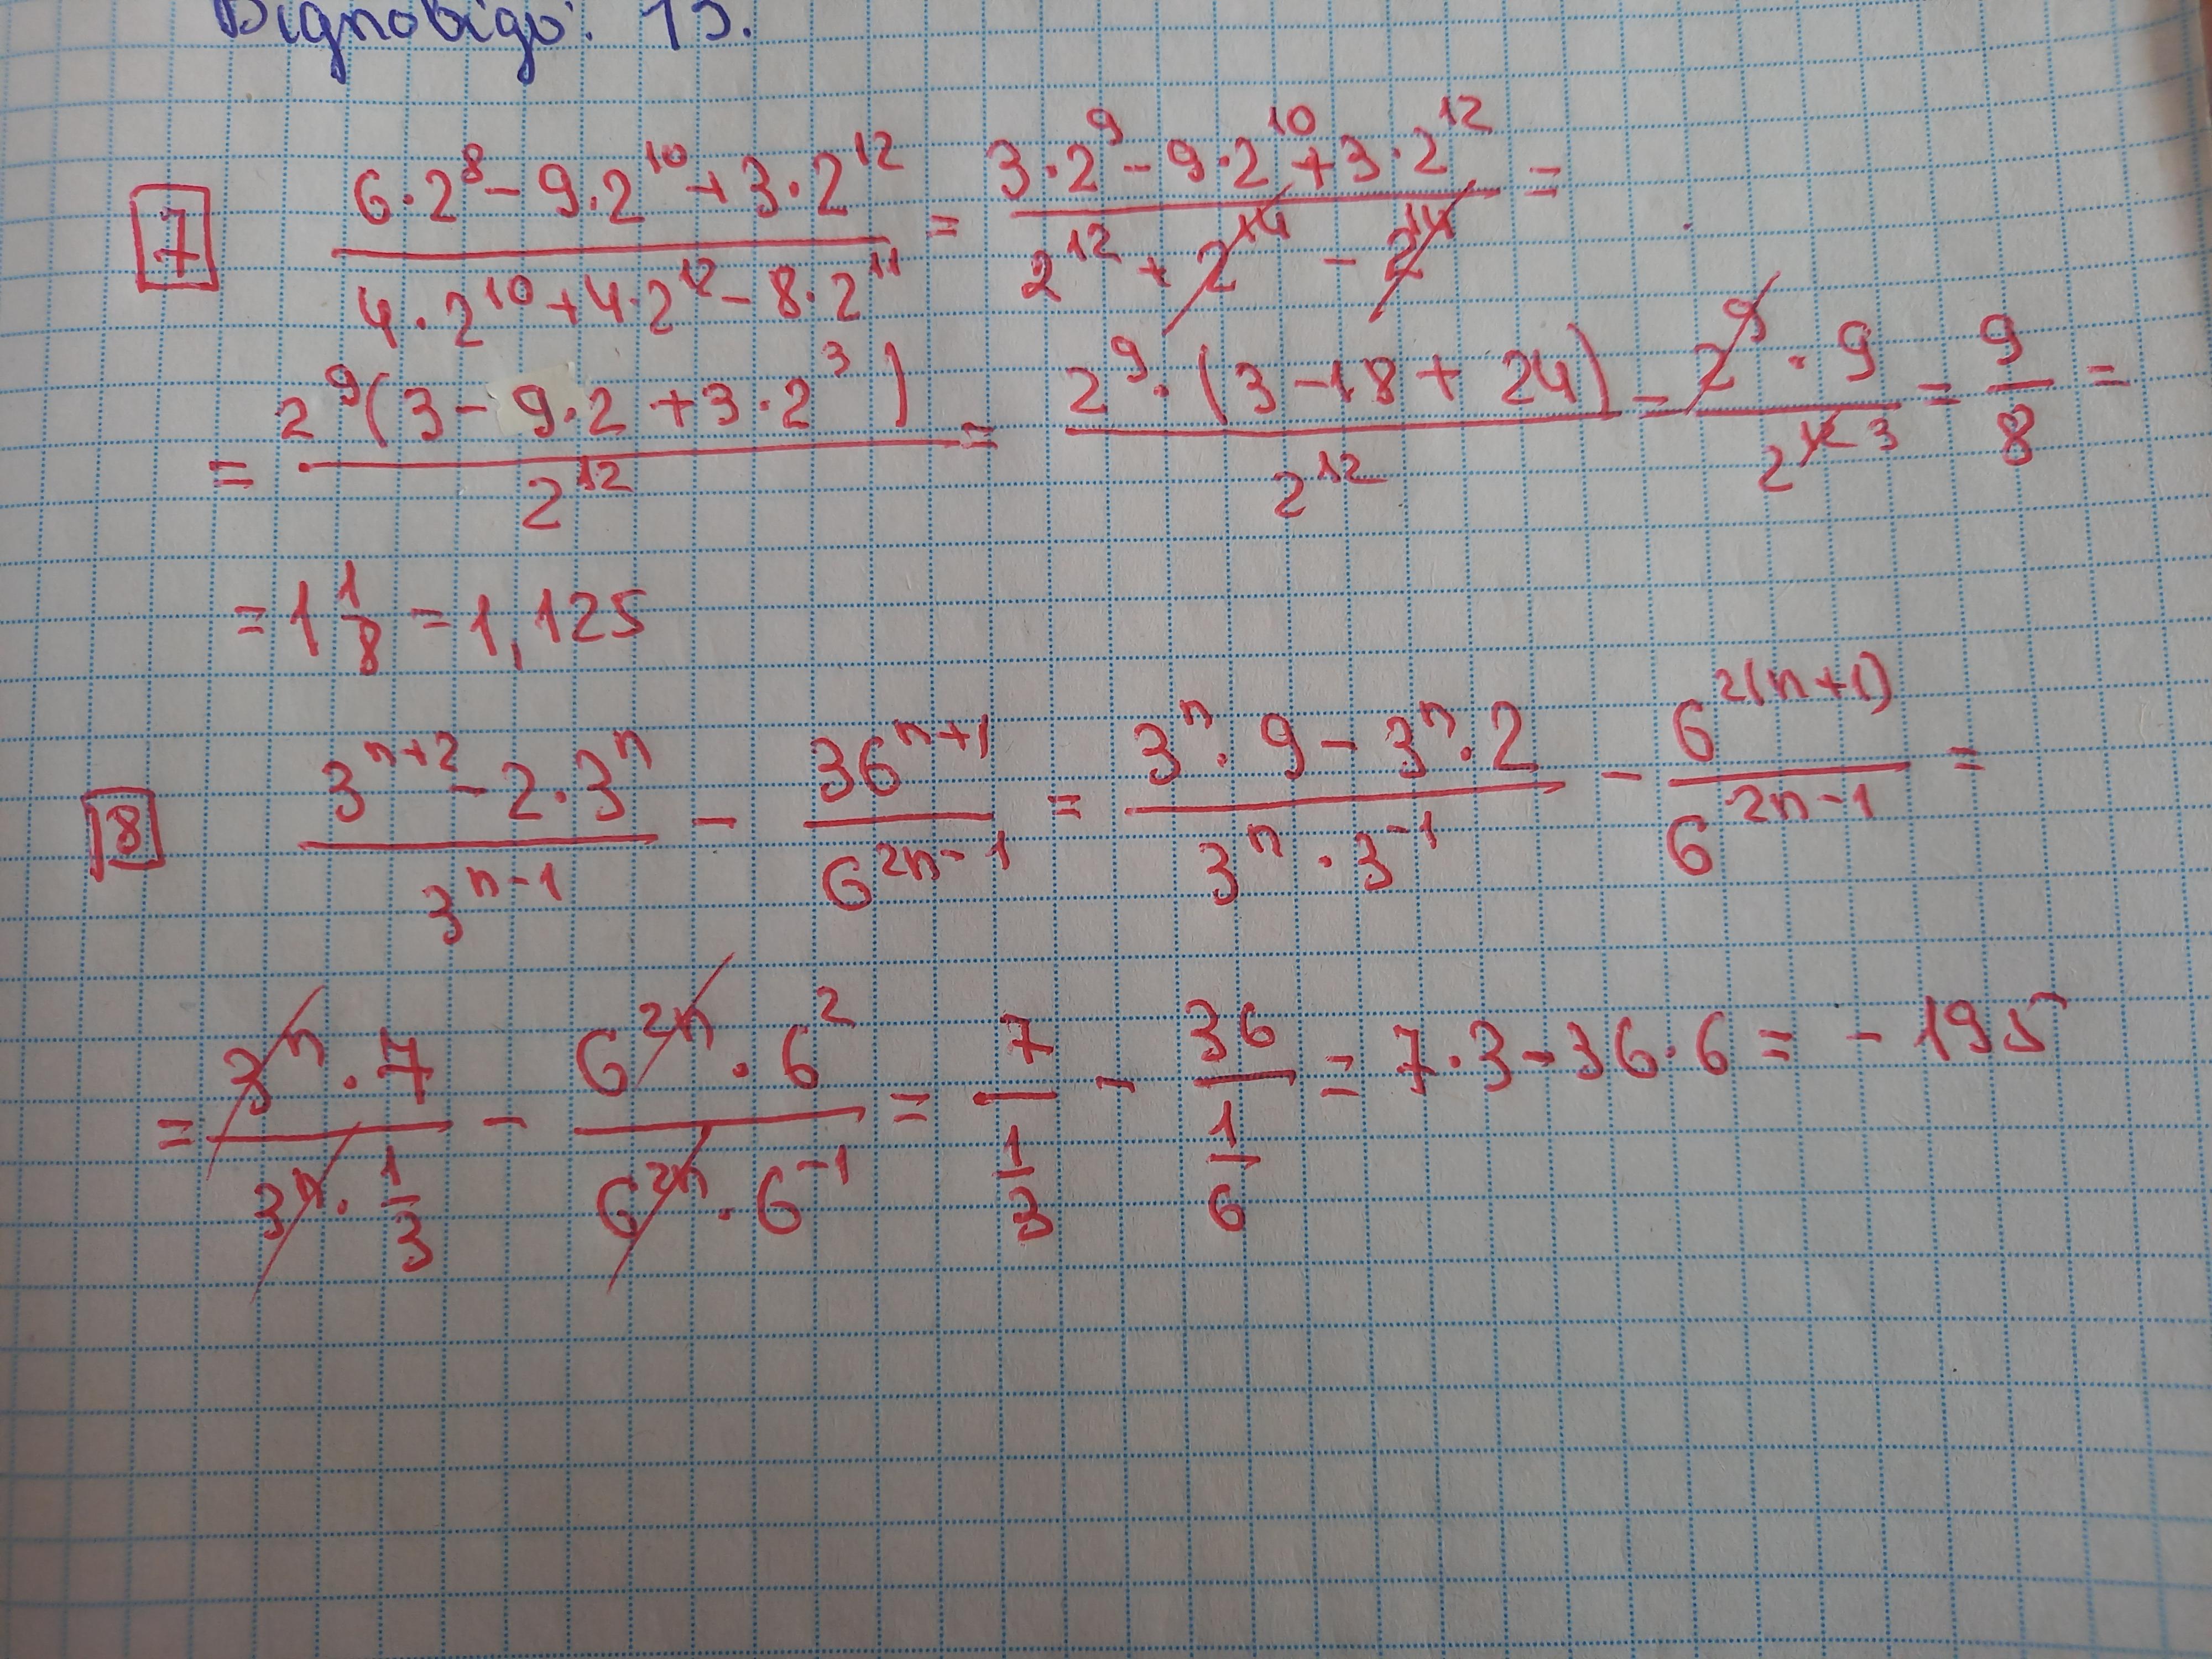 Відповідь: 15.
7 \frac{6·2^8 - 9·2^{10} + 3·2^{12}}{4·2^{10} + 4·2^{12} - 8·2^{11}} = \frac{3·2^9 - 9·2^{10} + 3·2^{12}}{2^{12} + 2^{14} - 2^{14}} =
= \frac{2^9(3 - 9·2 + 3·2^3)}{2^{12}} = \frac{2^9·(3 - 18 + 24)}{2^{12}} = \frac{2^9·9}{2^{12 3}} = \frac{9}{8} =
= 1\frac{1}{8} = 1,125
8 \frac{3^{n+2} - 2·3^n}{3^{n-1}} - \frac{36^{n+1}}{6^{2n-1}} = \frac{3^n·9 - 3^n·2}{3^n·3^{-1}} - \frac{6^{2(n+1)}}{6^{2n-1}} =
= \frac{3^n·7}{3^n·\frac{1}{3}} - \frac{6^{2n}·6^2}{6^{2n}·6^{-1}} = \frac{7}{\frac{1}{3}} - \frac{36}{\frac{1}{6}} = 7·3 - 36·6 = -195